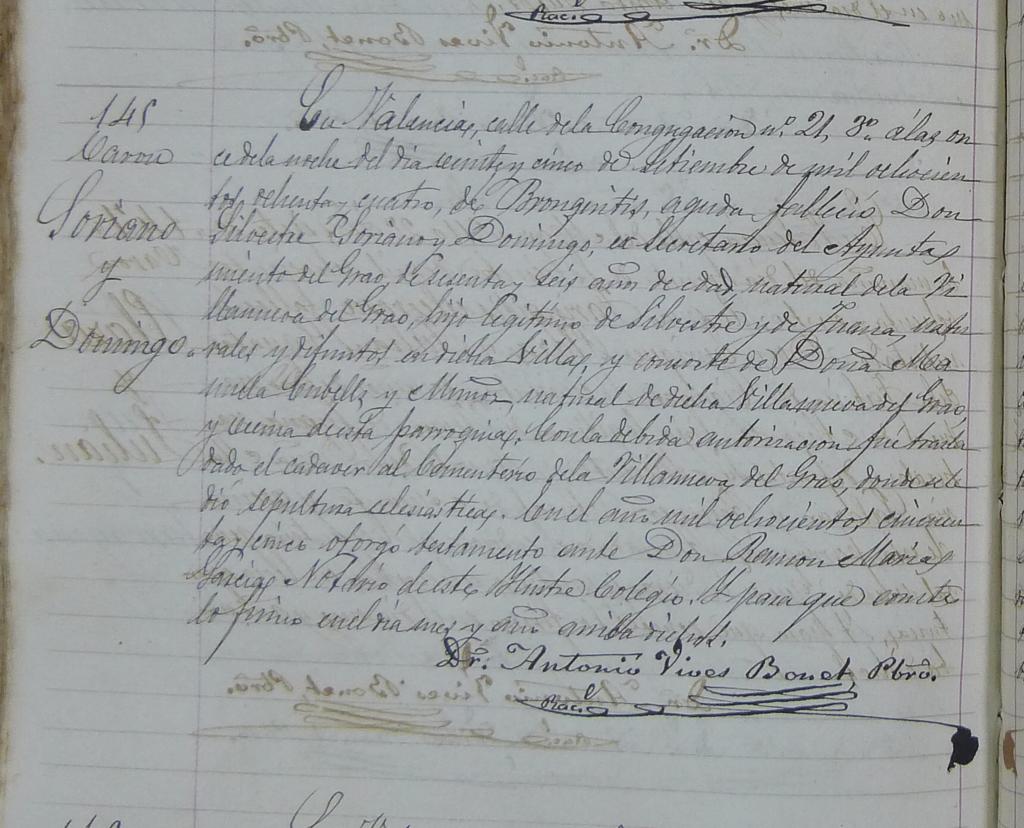 Raci.
Dr. Antonio Vives Bonet, Pbro.
Raci.
145
Varon
Soriano
y
Domingo.
En Valencia, calle dela Congregacion nº. 21, 3º. álas on
ce dela noche del dia veinte y cinco de Setiembre de mil ochocien
tos ochenta y cuatro, de Bronquitis, aguda falleció, Don
Silvestre Soriano y Domingo, ex Secretario del Ayunta
miento del Grao, de sesenta y seis años de edad, natural dela Vi
llanueva del Grao, hijo legitimo de Silvestre y de Juana, natu
rales y difuntos en dicha Villa, y consorte de Doña Ma
nuela Cubells y Muñoz, natural de dicha Villanueva del Grao
y vecina de esta parroquia. Con la debida autorizacion fue trasla
dado el cadaver al Cementerio dela Villanueva del Grao, donde se le
dió sepultura eclesiástica. En el año mil ochocientos cincuen
ta y cinco otorgó testamento ante Don Ramon Maria
Garcia Notário de este Ilustre Colegio. Y para que conste
lo firmo en el dia mes y año arriba dichos.
Dr. Antonio Vives Bonet, Pbro.
Raci.